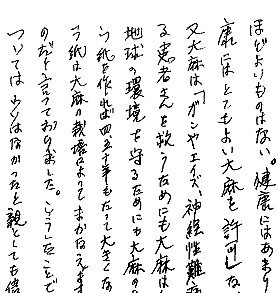 ほどよいものはない。健康にはあまり
康にはとてもよい大麻を許可しな
又大麻は「ガンやエイズ、神経性難病
る患者さんを救うためにも大麻は
地球の環境を守るためにも大麻の
ら紙を作れば四五十年もたって大きくな
う紙は大麻の栽培によってまかなえます
のだと言っておりました。こうしたことで
ついては少くはなかったと親としても信